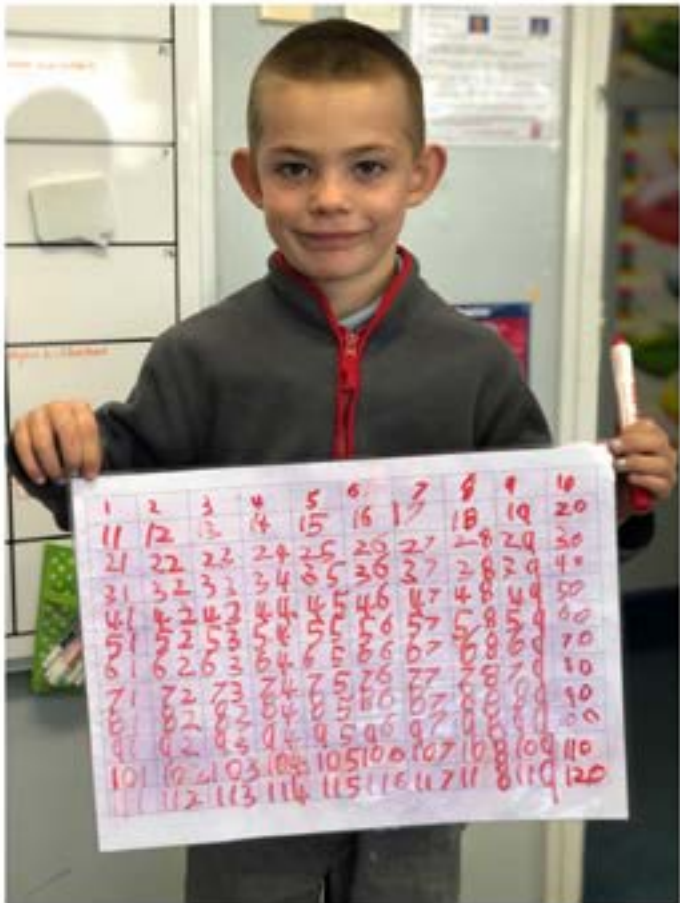 1 2 3 4 5 6 7 8 9 10
11 12 13 14 15 16 17 18 19 20
21 22 23 24 25 26 27 28 29 30
31 32 33 34 35 36 37 38 39 40
41 42 43 44 45 46 47 48 49 50
51 52 53 54 55 56 57 58 59 60
61 62 63 64 65 66 67 68 69 70
71 72 73 74 75 76 77 78 79 80
82 84 85 90
92 95 96 97
101 103 104 105 106 107 108 109 110
112 113 114 115 116 117 118 119 120